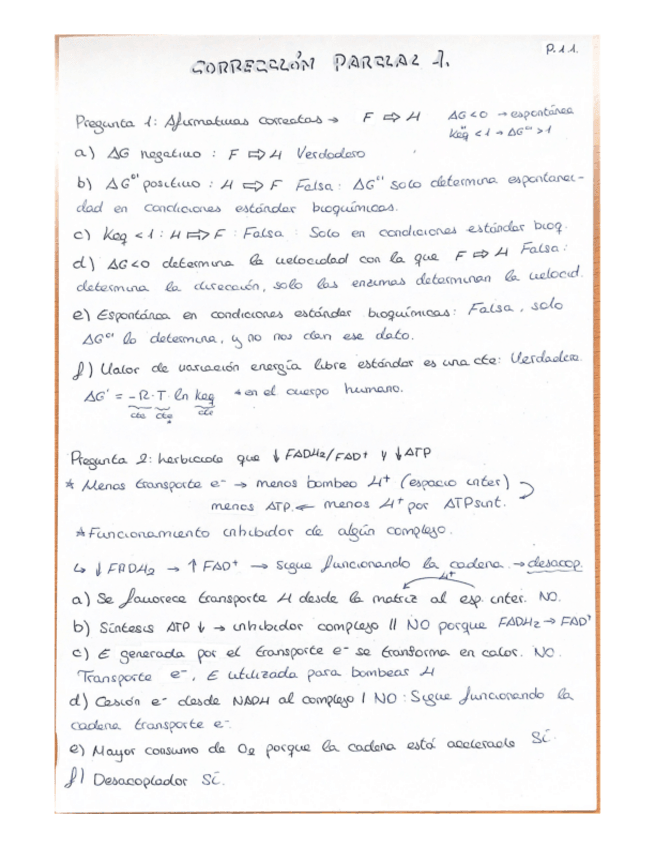 P.11.
CORRECCIÓN PARCIAL 1.
Pregunta 1: Afirmativas correctas → F ⇨ H    ΔG<0 → espontánea
Keq < 1 → ΔG°' > 1
a) ΔG negativo : F ⇨ H Verdadero
b) ΔG°' positivo : H ⇨ F Falsa : ΔG°' solo determina espontanei-
dad en condiciones estándar bioquímicas.
c) Keq < 1 : H ⇨ F : Falsa : Solo en condiciones estándar bioq.
d) ΔG<0 determina la velocidad con la que F ⇨ H Falsa :
determina la dirección, solo las enzimas determinan la velocid.
e) Espontánea en condiciones estándar bioquímicas : Falsa, solo
ΔG°' lo determina, y no nos dan ese dato.
f) Valor de variación energía libre estándar es una cte : Verdadera
ΔG' = -R·T·ln Keq → en el cuerpo humano.
cte cte cte
Pregunta 2: herbicida que ↓ FADH2/FAD+ y ↓ATP
* Menos transporte e- → menos bombeo H+ (espacio inter)
menos ATP ← menos H+ por ATPsint.
* Funcionamiento inhibidor de algún complejo.
↳ ↓ FADH2 → ↑ FAD+ → Sigue funcionando la cadena → desacop.
H+
a) Se favorece transporte H desde la matriz al esp. inter. NO.
b) Síntesis ATP ↓ → inhibidor complejo II NO porque FADH2 → FAD+
c) E generada por el transporte e- se transforma en calor. NO.
Transporte e-, E utilizada para bombear H
d) Cesión e- desde NADH al complejo I NO : Sigue funcionando la
cadena transporte e-.
e) Mayor consumo de O2 porque la cadena está acelerada SÍ.
f) Desacoplador SÍ.